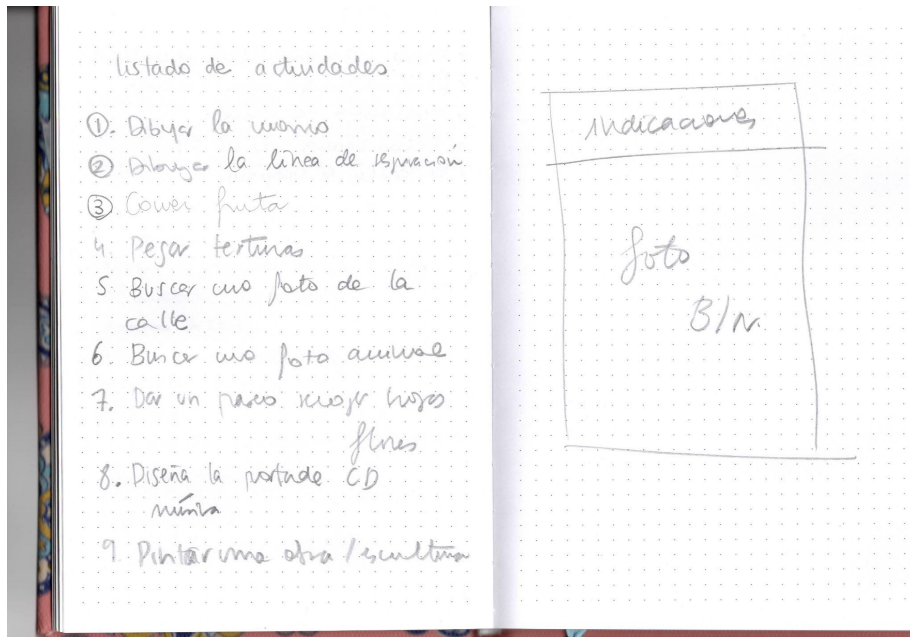 listado de actividades
1. Dibujar la mano
2. Dibujar la línea de respiración
3. Comer fruta
4. Pegar texturas
5 Buscar una foto de la
calle
6. Buscar una foto animal
7. Dar un paseo recoger hojas
flores
8. Diseña la portada CD
música
9. Pintar una obra / escultura
indicaciones
foto
B/N.